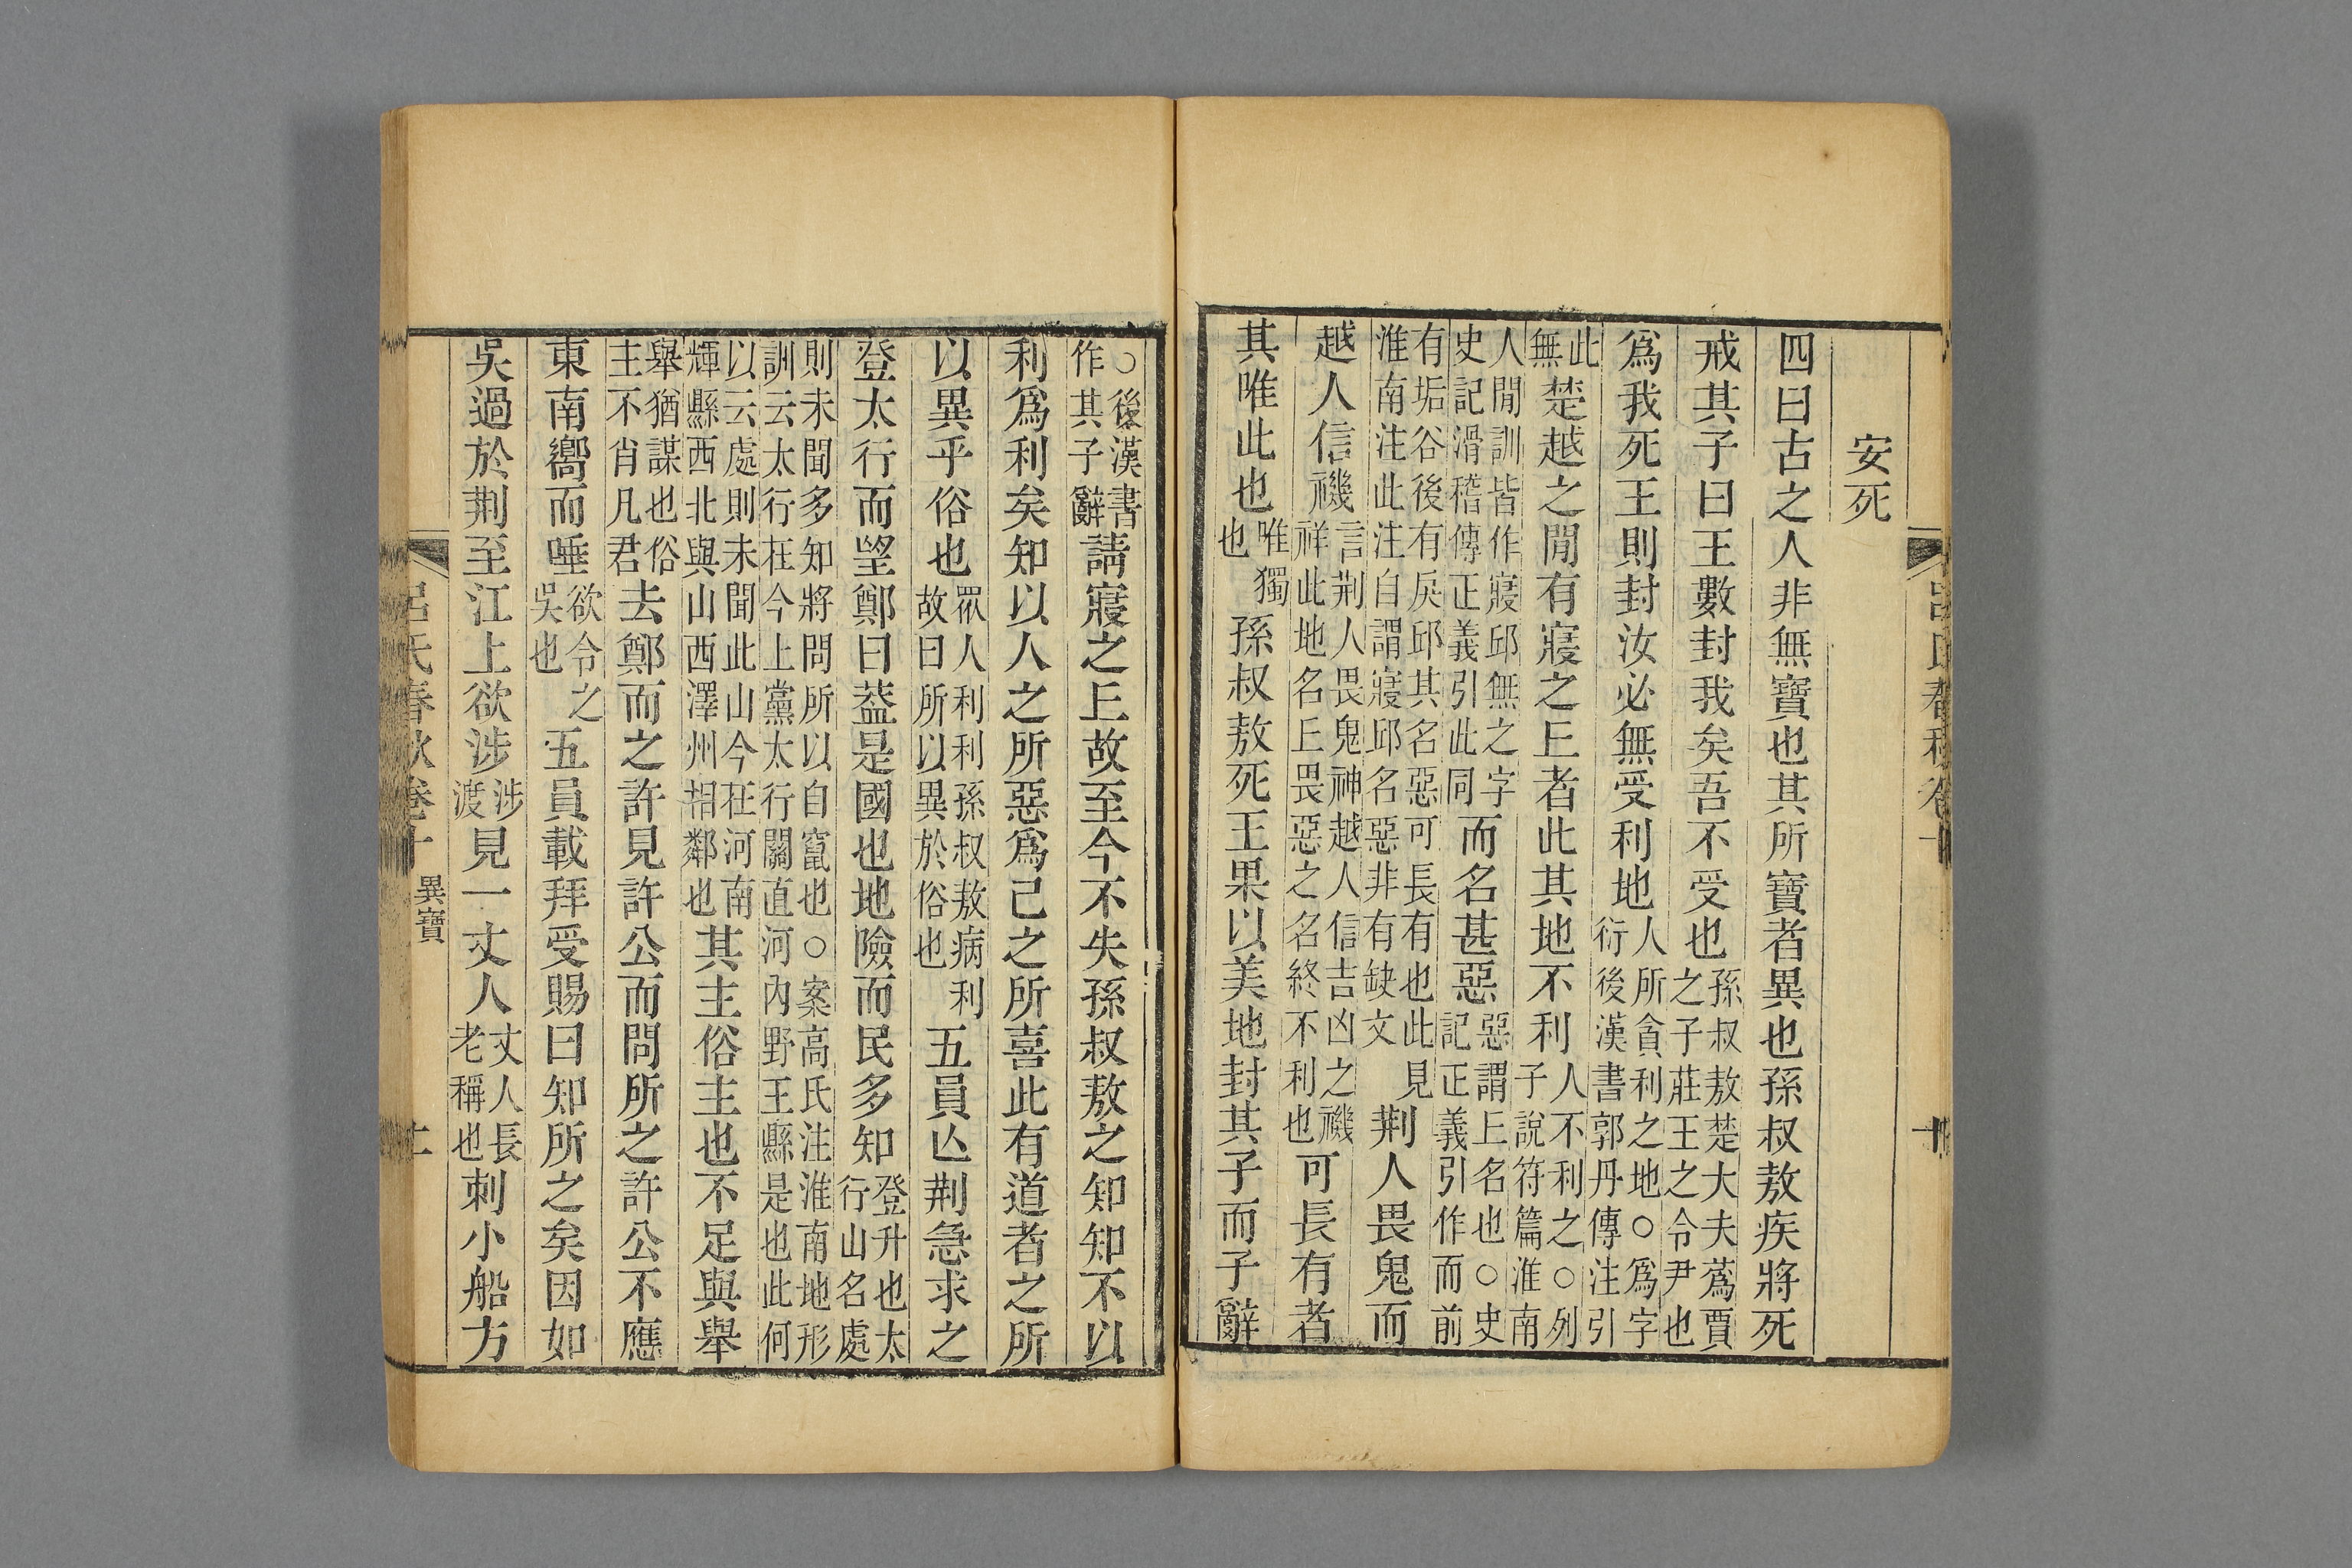 安死
四曰古之人非無寶也其所寶者異也孫叔敖疾將死
戒其子曰王數封我矣吾不受也孫叔敖楚大夫蔿賈之子莊王之令尹也
爲我死王則封汝必無受利地人所貪利之地○爲字衍後漢書郭丹傳注引
此無楚越之閒有寢之丘者此其地不利人不利之○列子說符篇淮南
人閒訓皆作寢邱無之字史記滑稽傳正義引此同而名甚惡惡謂上名也○史記正義引作而前
有垢谷後有戾邱其名惡可長有也此見淮南注此注自謂寢邱名惡非有缺文荆人畏鬼而
越人信禨言荆人畏鬼神越人信吉凶之禨祥此地名丘畏惡之名終不利也可長有者
其唯此也唯獨也孫叔敖死王果以美地封其子而子辭
○後漢書作其子辭請寢之丘故至今不失孫叔敖之知知不以
利爲利矣知以人之所惡爲己之所喜此有道者之所
以異乎俗也眾人利利孫叔敖病利故曰所以異於俗也五員亾荆急求之
登太行而望鄭曰葢是國也地險而民多知登升也太行山名處
則未聞多知將問所以自竄也○案高氏注淮南地形訓云太行在今上黨太行關直河內野王縣是也此何
以云處則未聞此山今在河南輝縣西北與山西澤州相鄰也其主俗主也不足與舉
舉猶謀也俗主不肖凡君去鄭而之許見許公而問所之許公不應
東南嚮而唾欲令之吳也五員載拜受賜曰知所之矣因如
吳過於荆至江上欲涉涉渡見一丈人丈人長老稱也刺小船方
呂氏春秋卷十 異寶